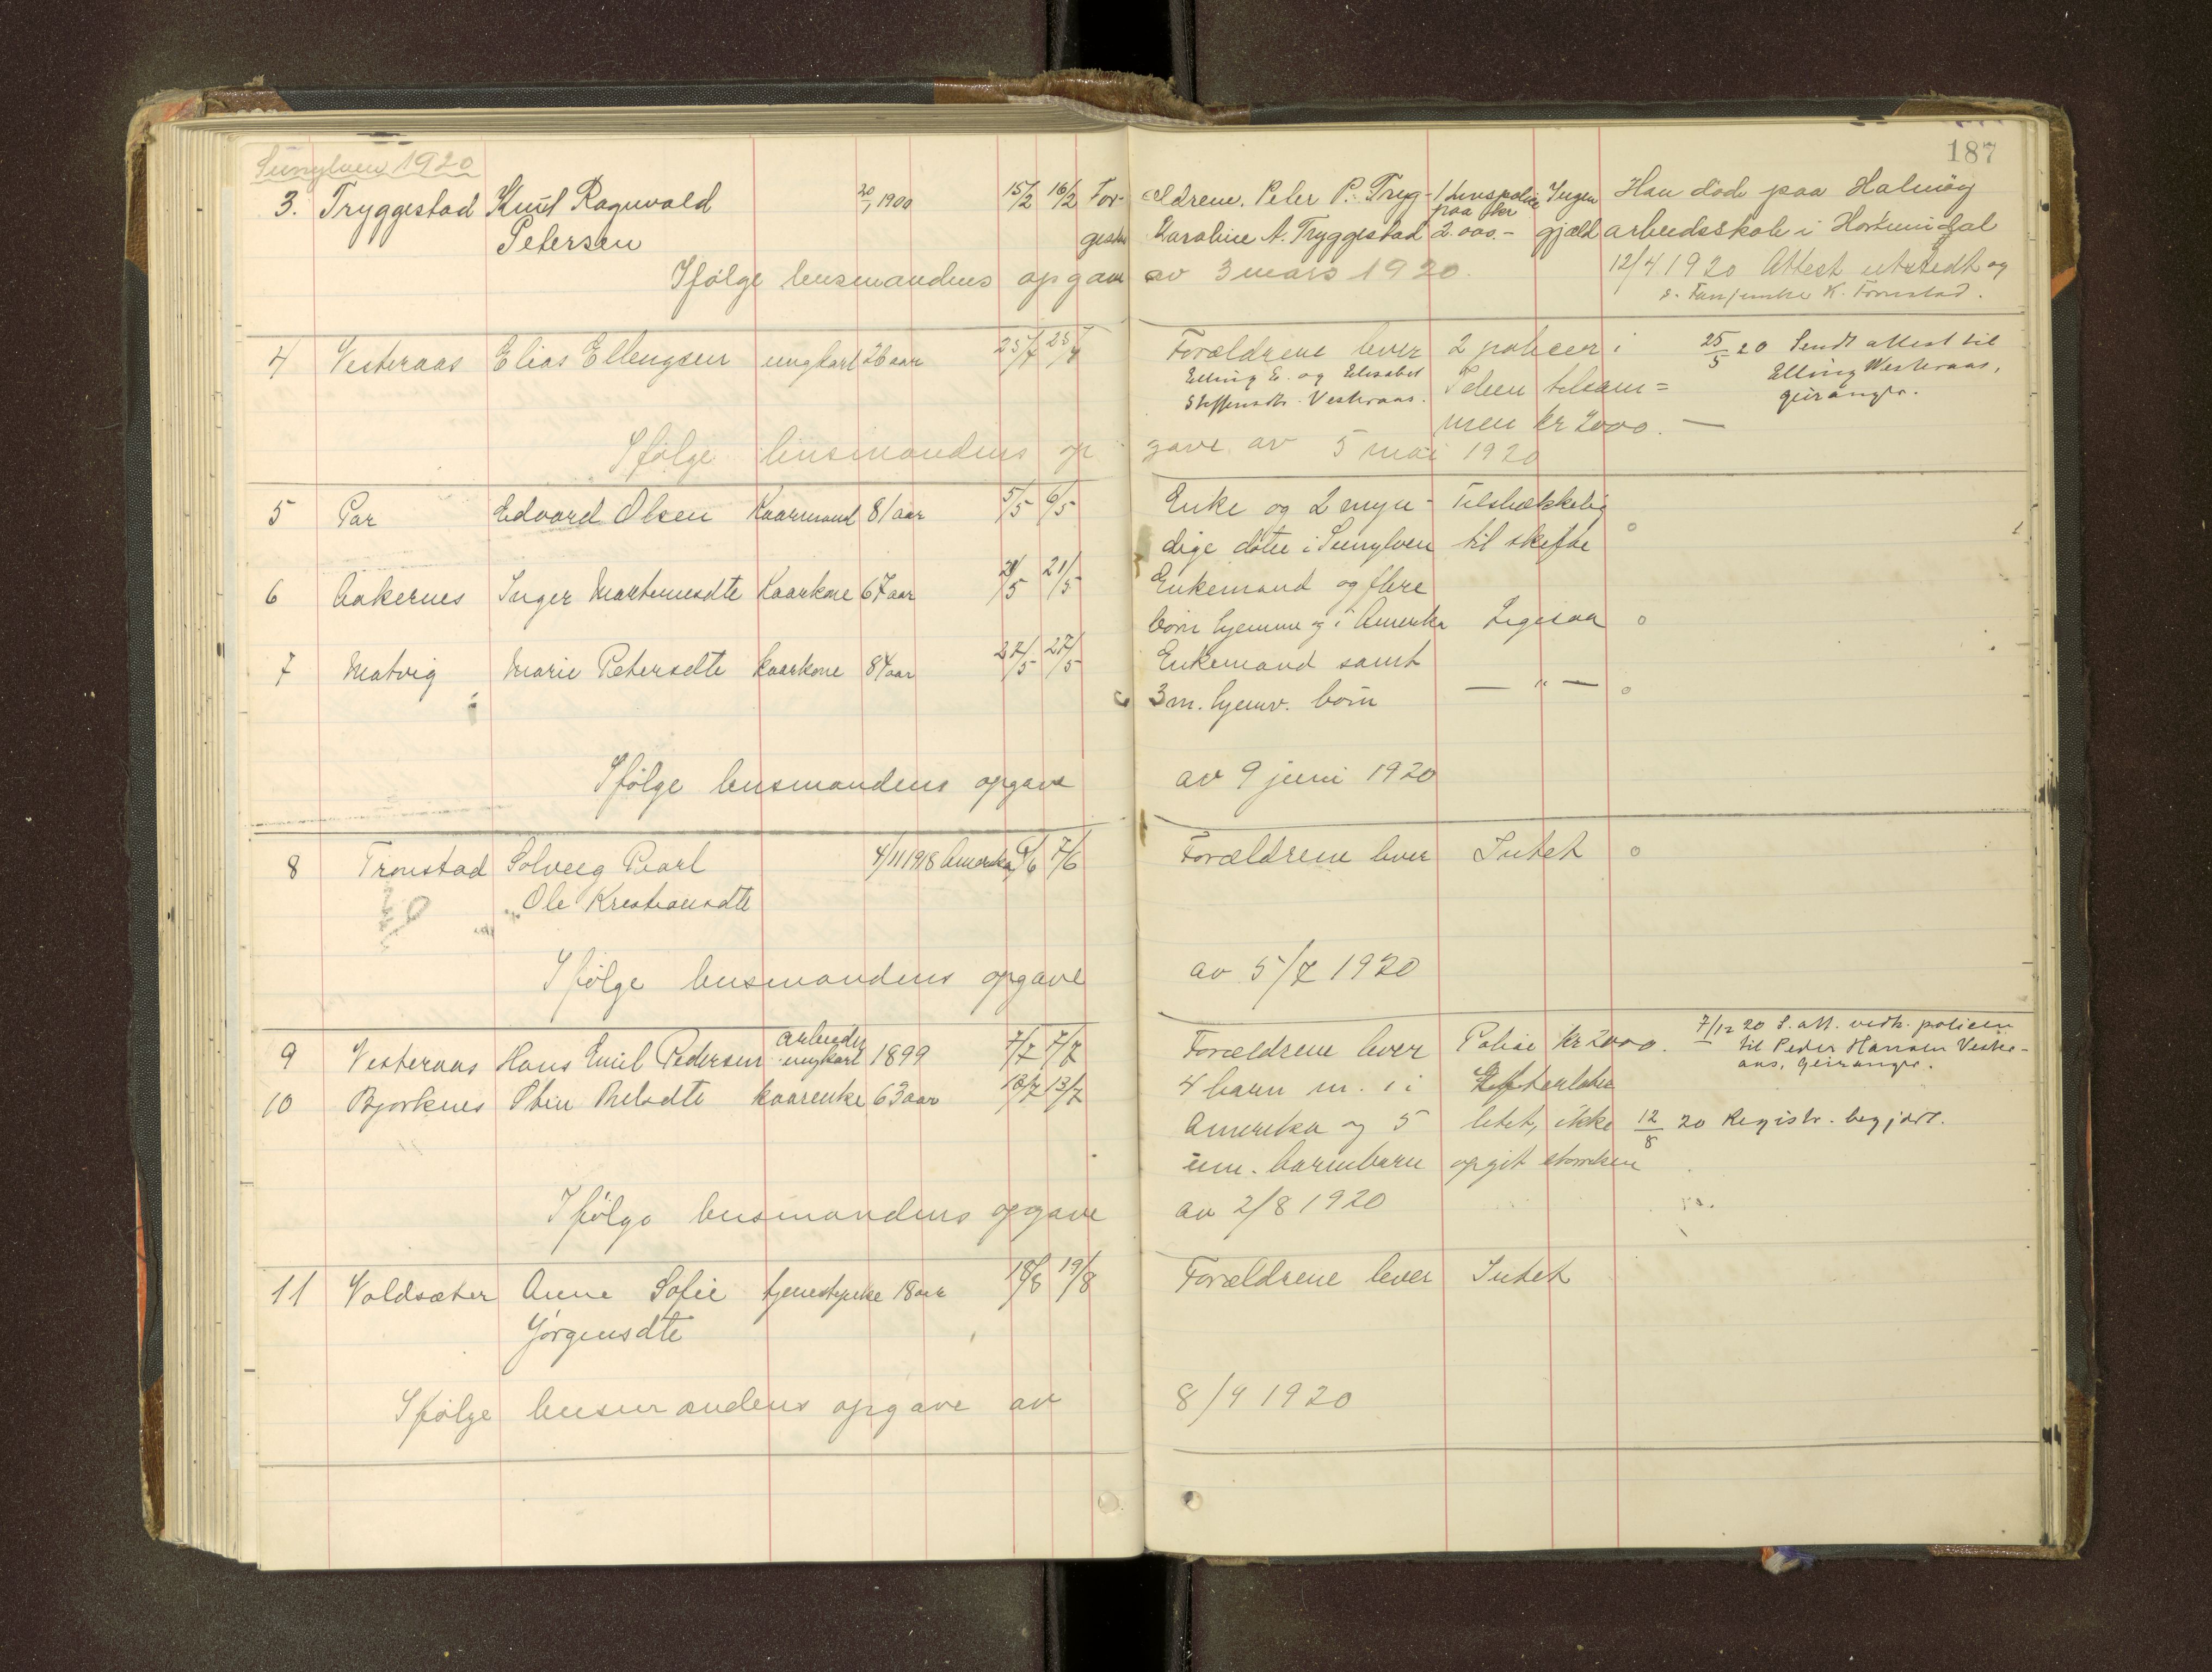 187
Sunylven 1920
3. Tryggestad Knut Ragnvald 20/1 1900 15/2 16/2 For- ældrene. Peter P. Tryg- 1 livspolice Ingen Han döde paa Halmöy
paa kr
Petersen gestad Karoline A. Tryggestad 2.000.- gjæld arbeidsskole i
Ifölge lensmandens opgave av 3 mars 1920. 12/4 1920 Attest utstedt og
K. Tronstad.
4 Vesteraas Elias Ellengsen ungkarl 26 aar 25/4 25/4 Forældrene lever 2 policer i 25/5 20 Sendt attest til
Elling E. og Elisabet Idun tilsam= Elling Westeraas,
Steffensdtr. Vesteraas. Geiranger.
men kr 2000. —
Ifölge lensmandens opgave av 5 mai 1920
5 Par Edvard Olsen Kaarmand 81 aar 5/5 6/5 Enke og 2 myn- Tilstrækkelig
dige døtre i Sunylven til skifte o
6 Aakernes Inger Martinusdte Kaarkone 67 aar 21/5 21/5 Enkemand og flere
börn hjemme og i Amerika Ligesaa o
7 Matvig Marie Petersdte kaarkone 84 aar 27/5 27/5 Enkemand samt
3 m. hjemv. börn — " — o
Ifölge lensmandens opgave av 9 juni 1920
8 Tronstad Solveig Pearl 4/11 1918 Amerika 7/6 Forældrene lever Intet o
Ole Kristiansdte
Ifölge lensmandens opgave av 5/7 1920
arbeider
9 Vesteraas Hans Emil Pedersen ungkarl 1899 7/7 7/7 Forældrene lever Police kr 2000. 7/12 20 S. att. vedk. policen
til Peder Hansen Vester-
aas, Geiranger.
10 Bjorknes kaarenke 63 aar 13/7 13/7 4 barn m. 1 i Efterlaten
Amerika og 5 letet, ikke 12/8 20 Registr. begjært.
um. barnebarn opgit
Ifölge lensmandens opgave av 2/8 1920
11 Voldsæter Anne Sofie tjenestepike 18 aar 18/8 19/8 Forældrene lever Intet
Jörgensdte
Ifölge lensmandens opgave av 8/9 1920